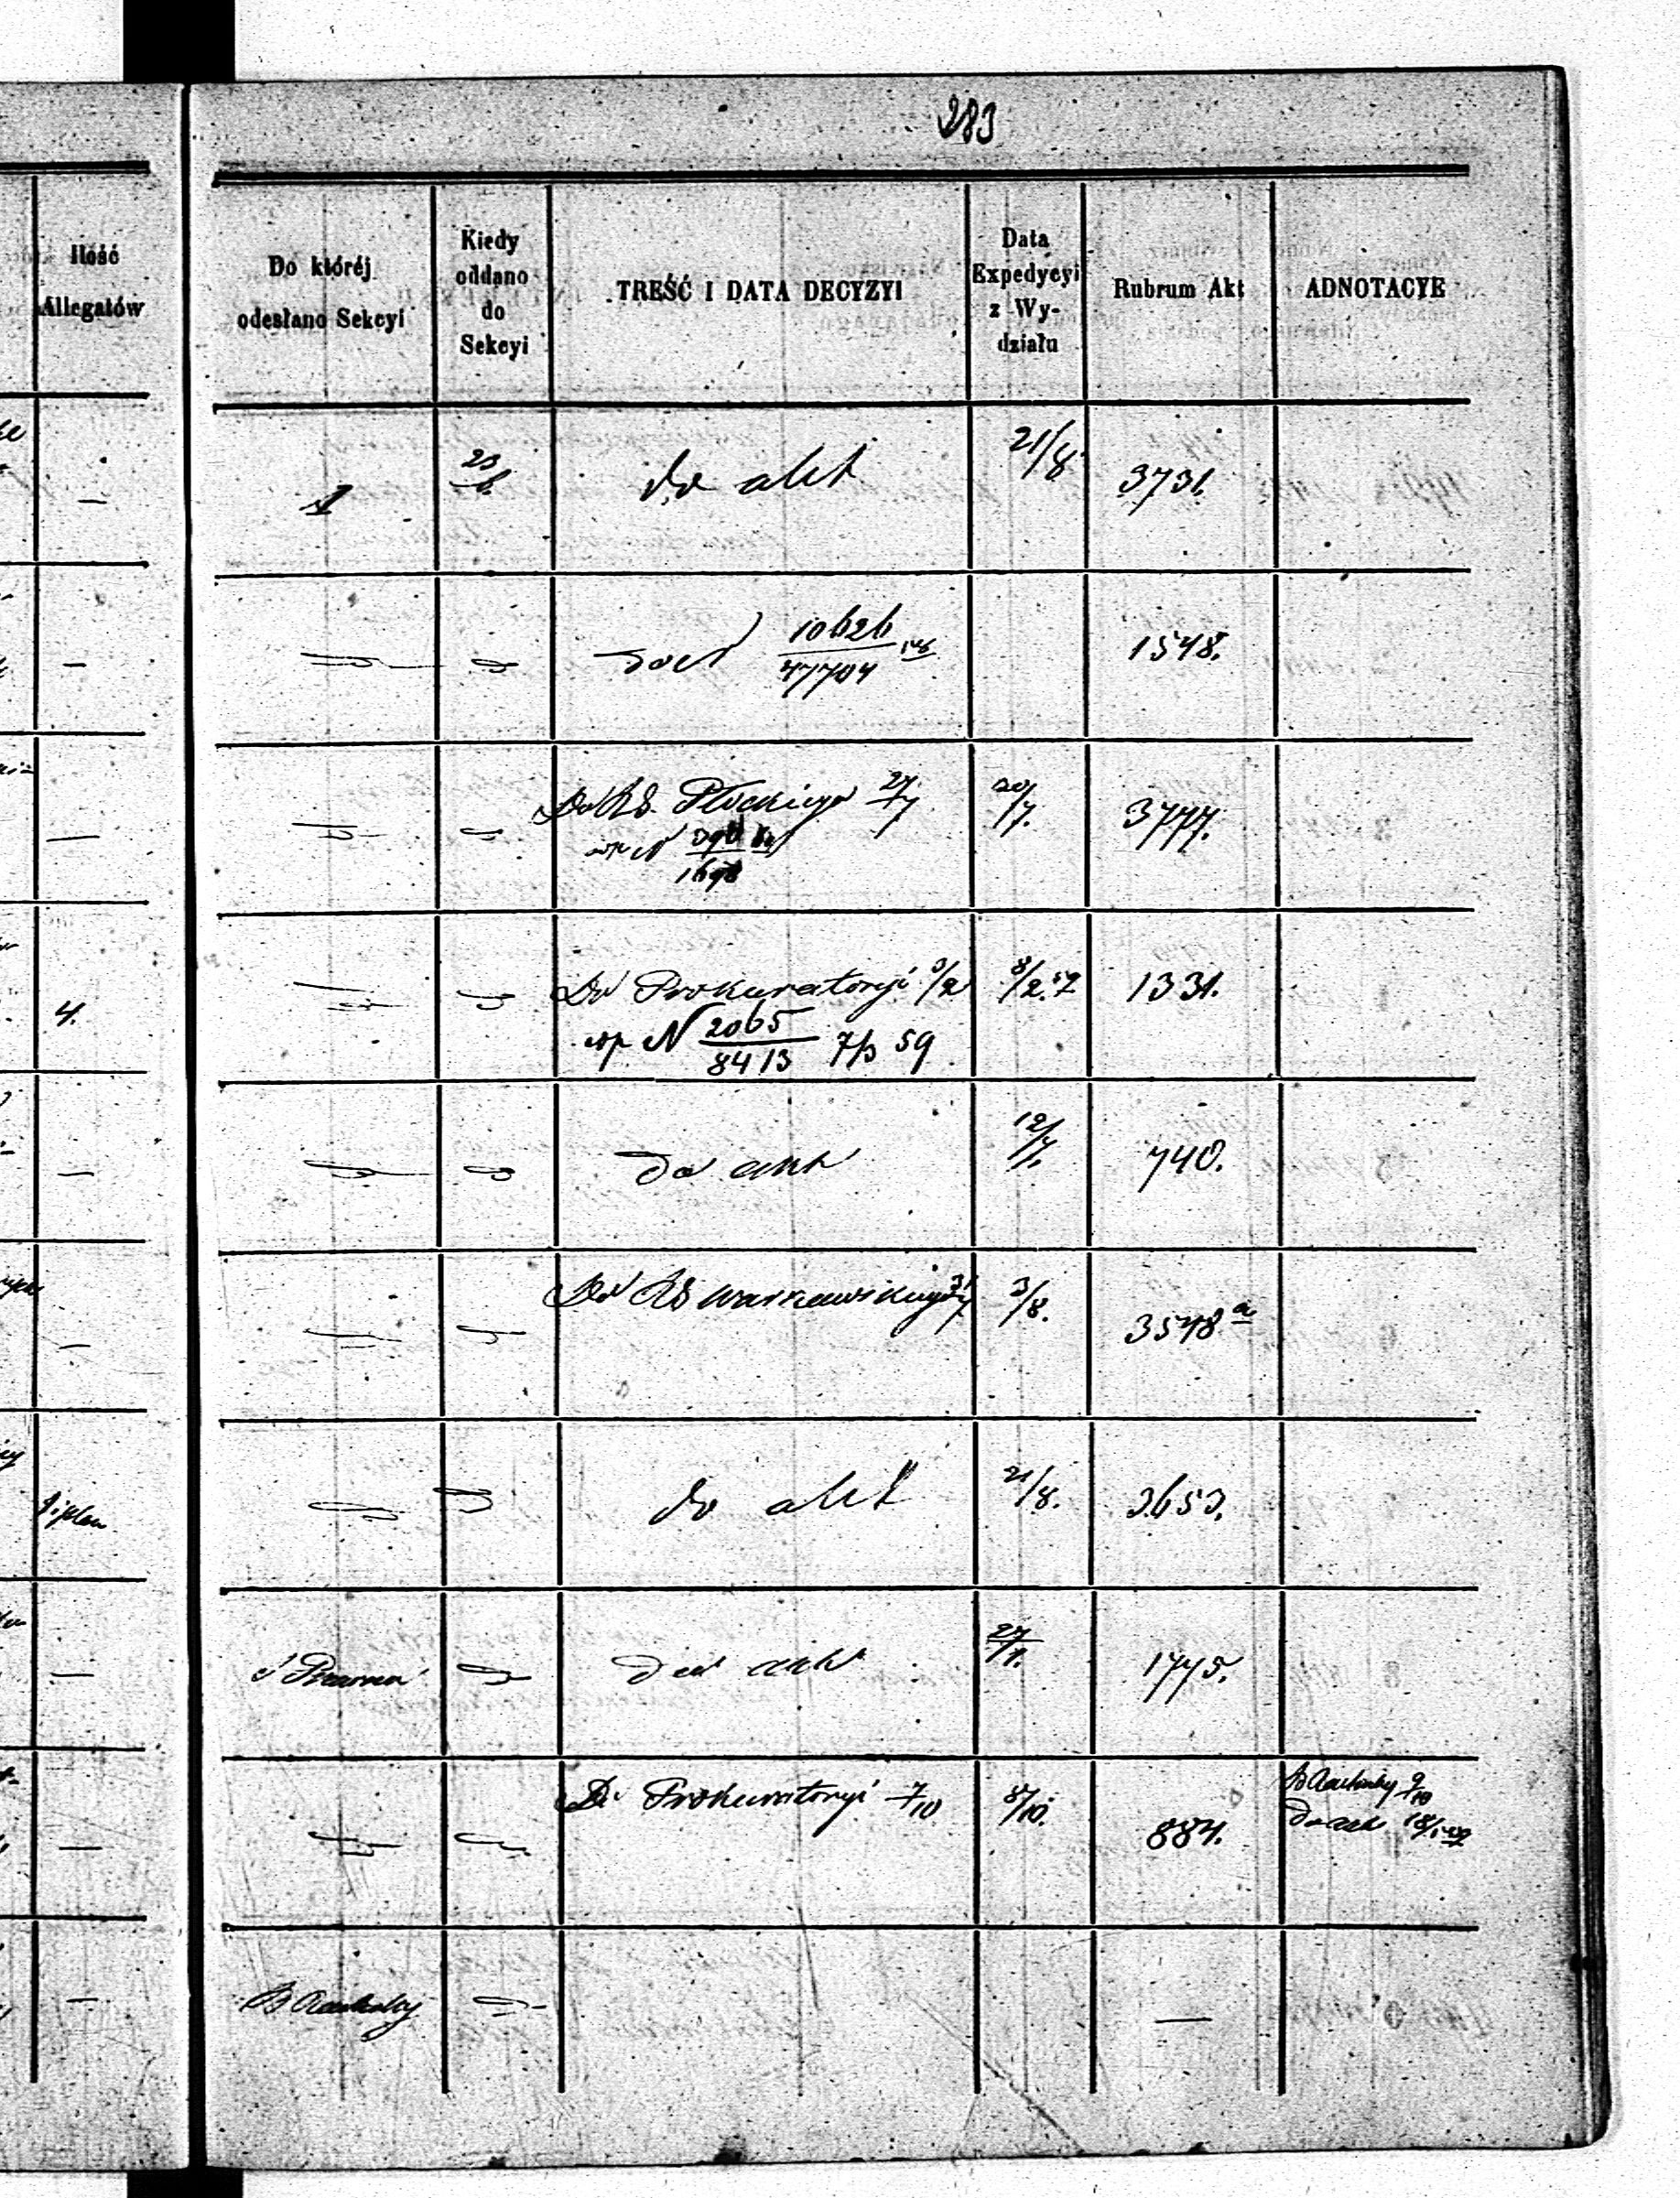 283
Ilość
Allegatów
Do któréj
odesłano Sekcyi
Kiedy
oddano
do
Sekcyi
TREŚĆ I DATA DECYZYI
Data
Expedycyi
z Wy-
działu
Rubrum Akt
ADNOTACYE
—
1
do akt
21/8
3731.
—
10626
47704
1548.
—
Do RG. Płockiego 27/7
3777.
4.
Do Prokuratoryi 3/2
8/2.
1331.
wp N 2065
8413 7/3 59
—
do akt
12/7.
740.
—
Do RG Warszawskiego
3/8.
3548 a
do akt
21/8.
3653.
—
Prawna
do akt
27/7.
1775.
—
Do Prokuratoryi 7/10
8/10.
884.
9/10
do akt
—
—